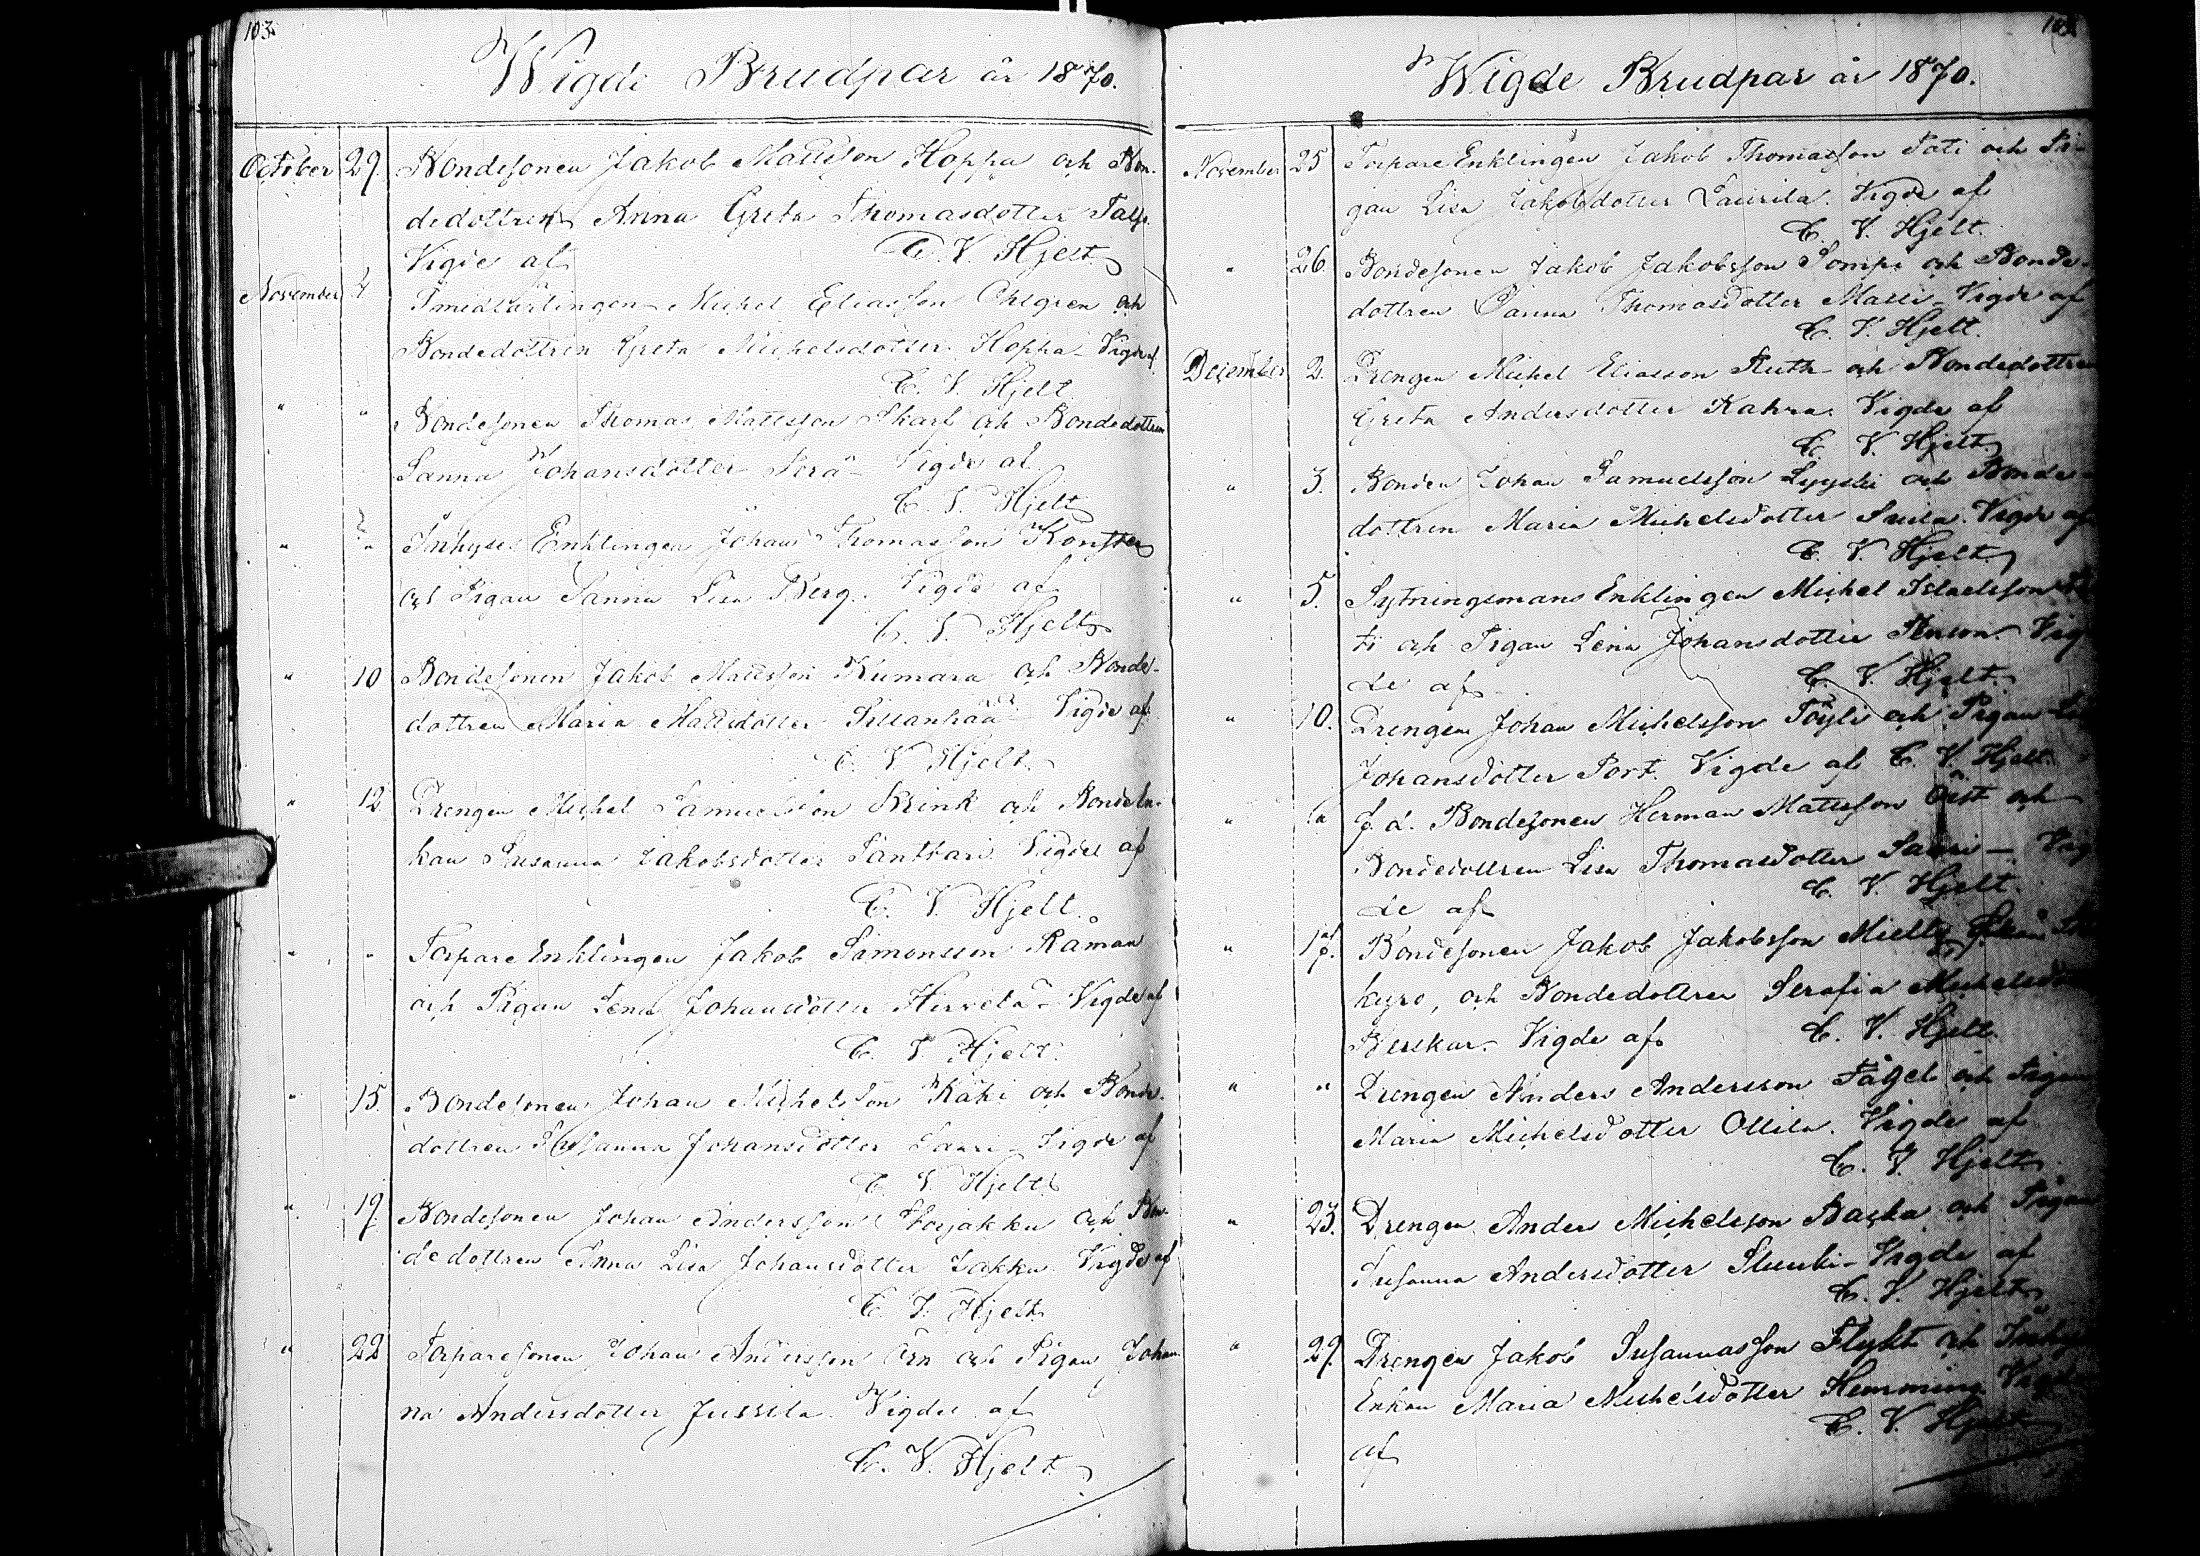 103.
Wigde Brudpar år 1870.
October 29. Bondesonen Jakob Mattsson Hoppa och Bon-
dedottren Anna Greta Thomasdotter
Vigde af C. V. Hjelt
November 4 Smedlärlingen Michel Eliasson Ohlgren och
Bondedottren Greta Michelsdotter Hoppa - Vigde af
C. V. Hjelt
" " Bondesonen Thomas Mattsson Skarf och Bondedottren
Sanna Johansdotter Serä - Vigde af
C. V. Hjelt
" " Inhyses Enklingen Johan Thomasson Konster
och Pigan Sanna Lisa Berg. Vigde af
C. V. Hjelt
" 10 Bondesonen Jakob Mattsson Kumara och Bonde-
dottren Maria Mattsdotter Sillanpää - Vigde af
C. V. Hjelt.
" 12 Drengen Michel Samuelsson Brink och Bondeen-
kan Susanna Jakobsdotter Santkari Vigde af
C. V. Hjelt.
" " Torpare Enklingen Jakob Simonsson Raman
och Pigan Lena Johansdotter Hirvelä - Vigde af
C. V. Hjelt.
" 15. Bondesonen Johan Michelsson Käki och Bonde-
dottren Susanna Johansdotter Sauri - Vigde af
C. V. Hjelt
" 19 Bondesonen Johan Andersson och Bon-
dedottren Anna Lisa Johansdotter Jakku Vigde af
C. V. Hjelt
" 22 Torparesonen Johan Andersson Örn och Pigan Johan-
na Andersdotter Jussila. Vigde af
C. V. Hjelt
Wigde Brudpar år 1870.
November 25 Torpare Enklingen Jakob Thomasson Pati och Pi-
gan Lisa Jakobsdotter Laurila. Vigde af
C. V. Hjelt.
" 26. Bondesonen Jakob Jakobsson Sompi och Bonde-
dottren Sanna Thomasdotter Massi - Vigde af
C. V. Hjelt.
December 2. Drengen Michel Eliasson Ruth och Bondedottren
Greta Andersdotter Kahra. Vigde af
C. V. Hjelt.
" 3. Bonden Johan Samuelsson Lyyski och Bonde-
dottren Maria Michelsdotter Vigde af
C. V. Hjelt.
" 5. Sytningsmans Enklingen Michel Israelsson
ti och Pigan Lena Johansdotter Vig-
de af C. V. Hjelt.
" 10. Drengen Johan Michelsson Töyli och Pigan
Johansdotter Port. Vigde af C. V. Hjelt.
" " f. d. Bondesonen Herman Mattsson Öist och
Bondedottren Lisa Thomasdotter Sauri - Vig
de af C. V. Hjelt.
" 17. Bondesonen Jakob Jakobsson Mielty
kyro, och Bondedottren Serafia Michelsdotter
Berskar. Vigde af C. V. Hjelt.
" " Drengen Anders Andersson Fågel och Pigan
Maria Michelsdotter Ollila. Vigde af
C. V. Hjelt
" 23. Drengen Anders Michelsson Backa och Pigan
Susanna Andersdotter Vigde af
C. V. Hjelt
" 29. Drengen Jakob Susannasson Flykt och
Enkan Maria Michelsdotter Hemming Vigde
af C. V. Hjelt